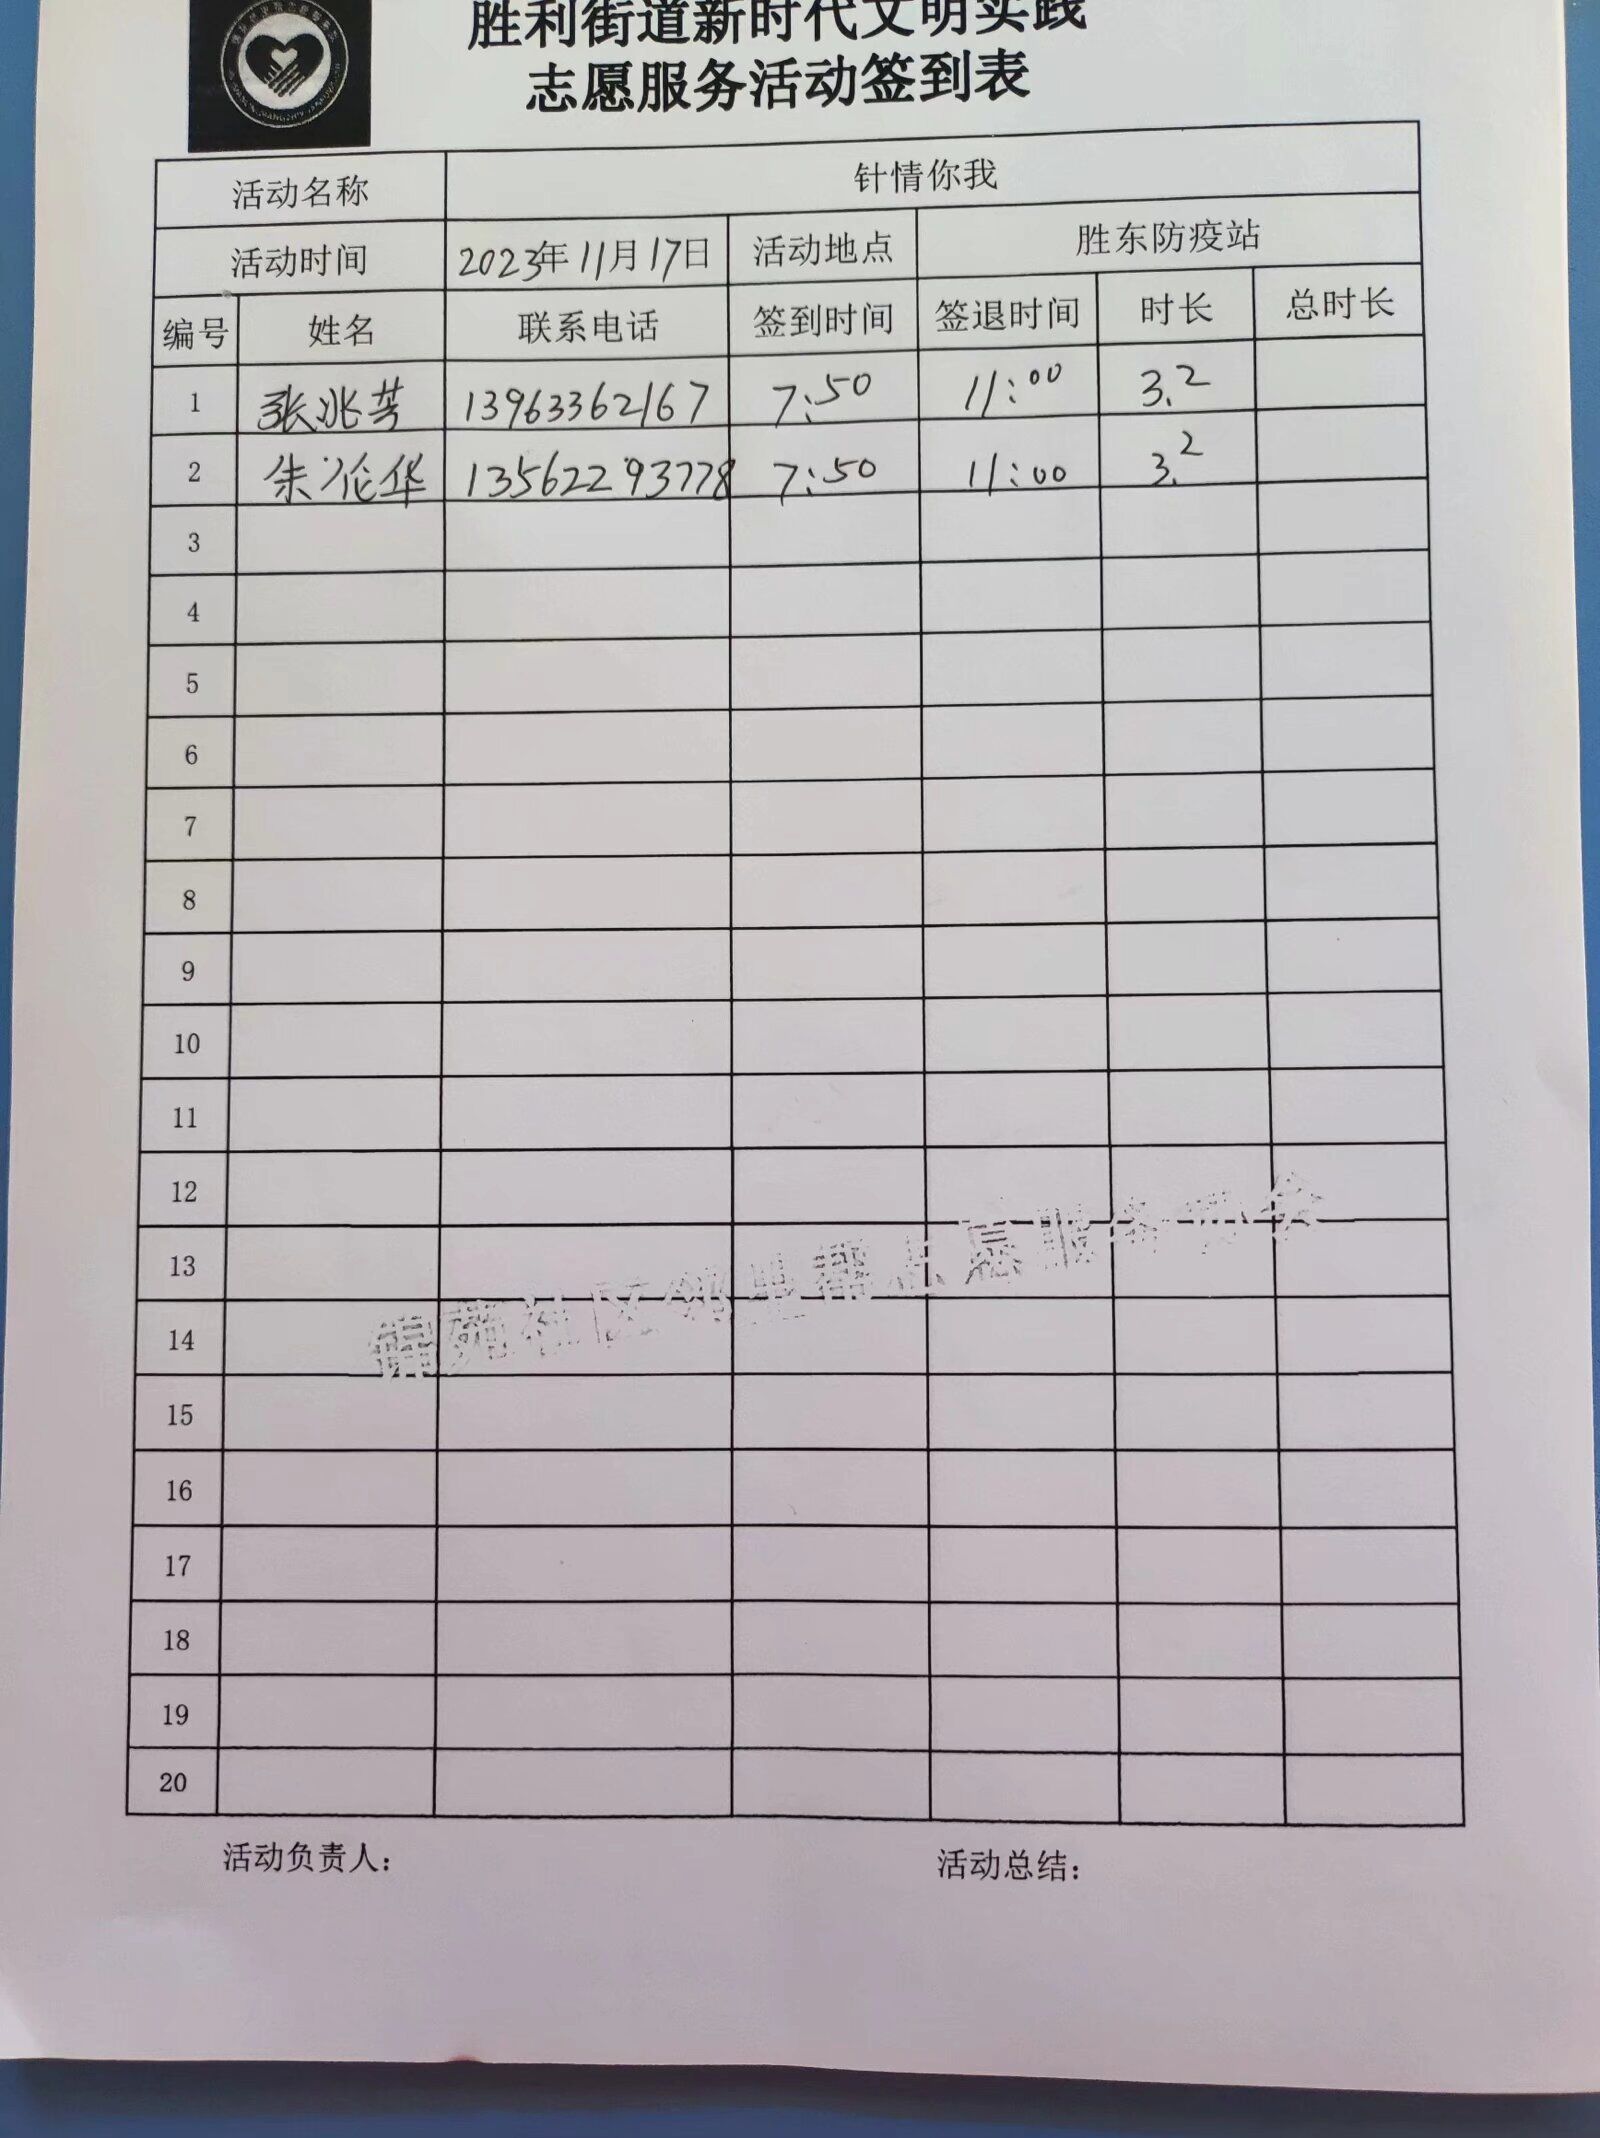 胜利街道新时代文明实践
志愿服务活动签到表
活动名称 针情你我
活动时间 2023年11月17日 活动地点 胜东防疫站
编号 姓名 联系电话 签到时间 签退时间 时长 总时长
1 张兆芳 13963362167 7:50 11:00 3.2
2 朱伦华 13562293778 7:50 11:00 3.2
3
4
5
6
7
8
9
10
11
12
13
14
15
16
17
18
19
20
锦苑社区邻里帮志愿服务协会
活动负责人: 活动总结: